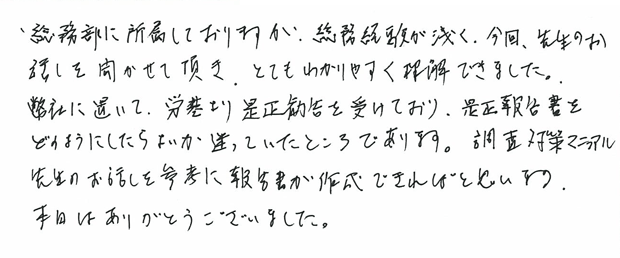 、総務部に所属しておりますが、総務経験が浅く、今回、先生のお
話しを聞かせて頂き、とてもわかりやすく理解できました。
弊社に置いて、労基より是正勧告を受けており、是正報告書を
どのようにしたらよいか迷っていたところであります。調査対策マニアル
先生のお話しを参考に報告書が作成できればと思います。
本日はありがとうございました。